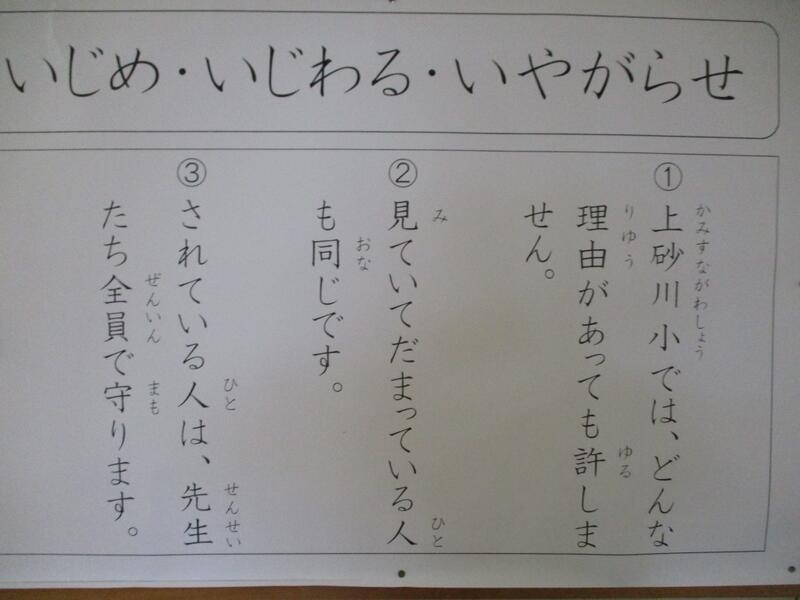 いじめ・いじわる・いやがらせ
①上砂川小では、どんな
かみすながわしょう
理由があっても許しま
りゆう ゆる
せん。
②見ていてだまっている人
み ひと
も同じです。
おな
③されている人は、先生
ひと せんせい
たち全員で守ります。
ぜんいん まも